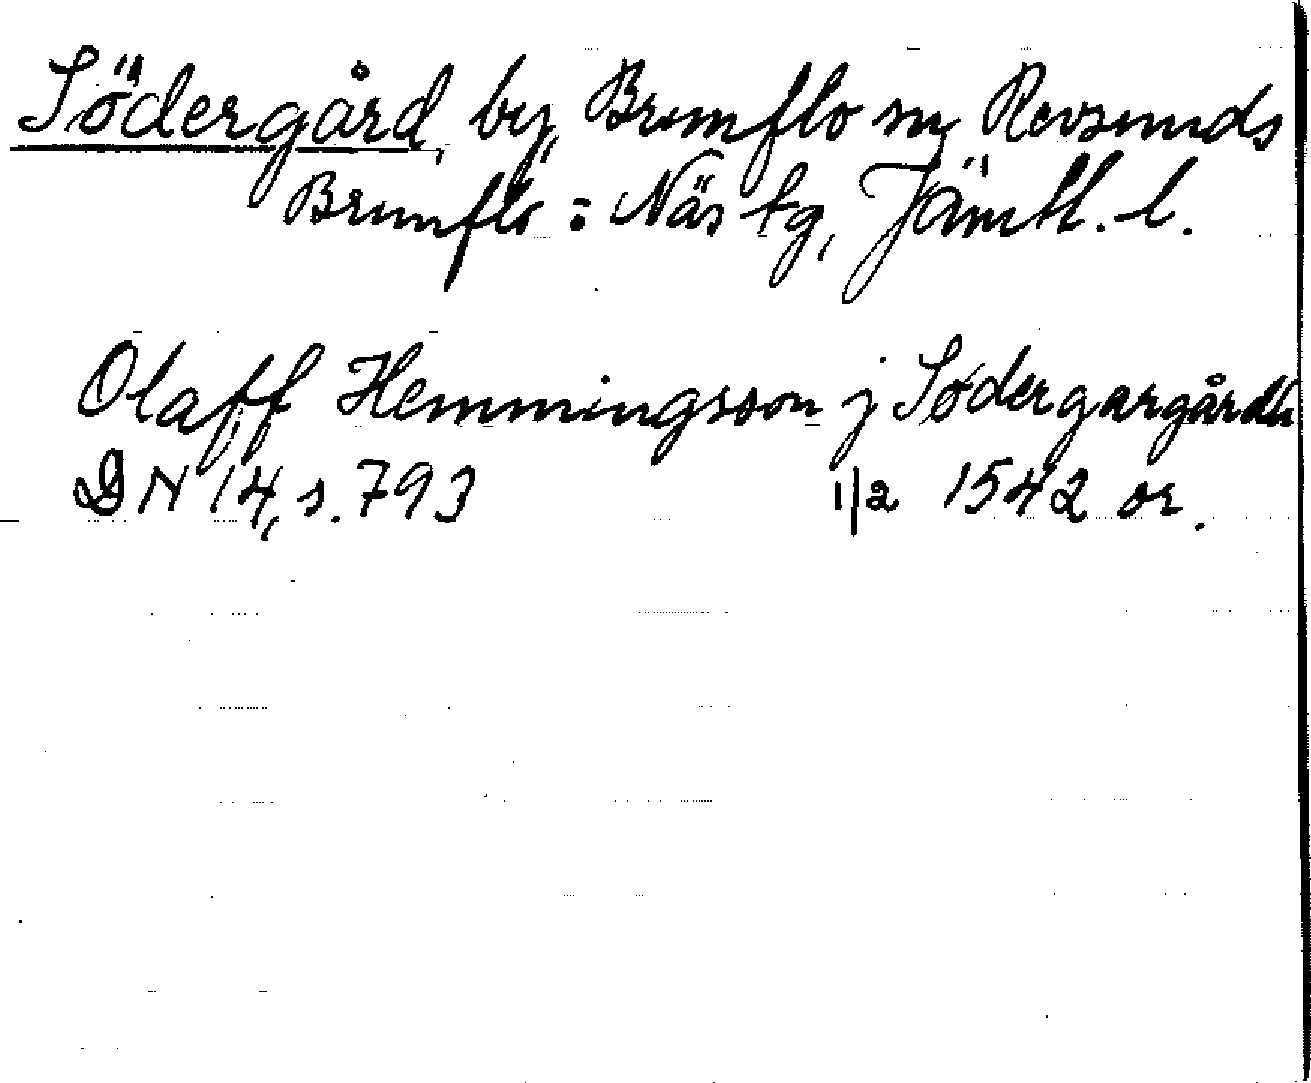 Södergård, by, Brunflo sn, Revsunds
Brunflo : Näs tg, Jämtl. l.
Olaff Hemmingsson j Södergargårdh
DN 14, s. 793 1/2 1542 or.